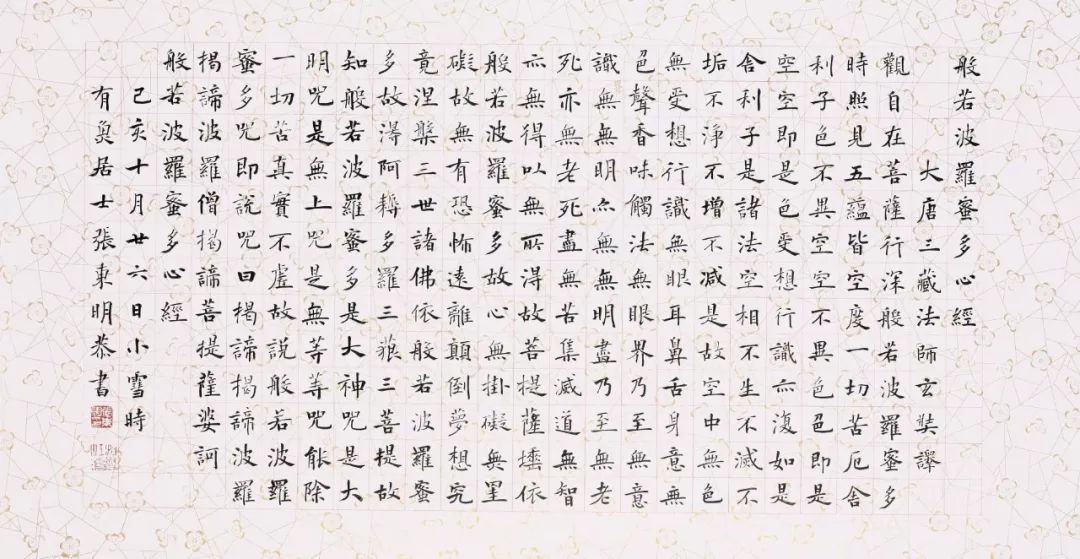 般若波羅蜜多心經
大唐三藏法師玄奘譯
觀自在菩薩行深般若波羅蜜多
時照見五蘊皆空度一切苦厄舍
利子色不異空空不異色色即是
空空即是色受想行識亦復如是
舍利子是諸法空相不生不滅不
垢不淨不增不減是故空中無色
無受想行識無眼耳鼻舌身意無
色聲香味觸法無眼界乃至無意
識無無明亦無無明盡乃至無老
死亦無老死盡無苦集滅道無智
亦無得以無所得故菩提薩埵依
般若波羅蜜多故心無掛礙無罣
礙故無有恐怖遠離顛倒夢想究
竟涅槃三世諸佛依般若波羅蜜
多故得阿耨多羅三藐三菩提故
知般若波羅蜜多是大神咒是大
明咒是無上咒是無等等咒能除
一切苦真實不虛故說般若波羅
蜜多咒即說咒曰揭諦揭諦波羅
揭諦波羅僧揭諦菩提薩婆訶
般若波羅蜜多心經
己亥十月廿六日小雪時
有無居士張東明恭書